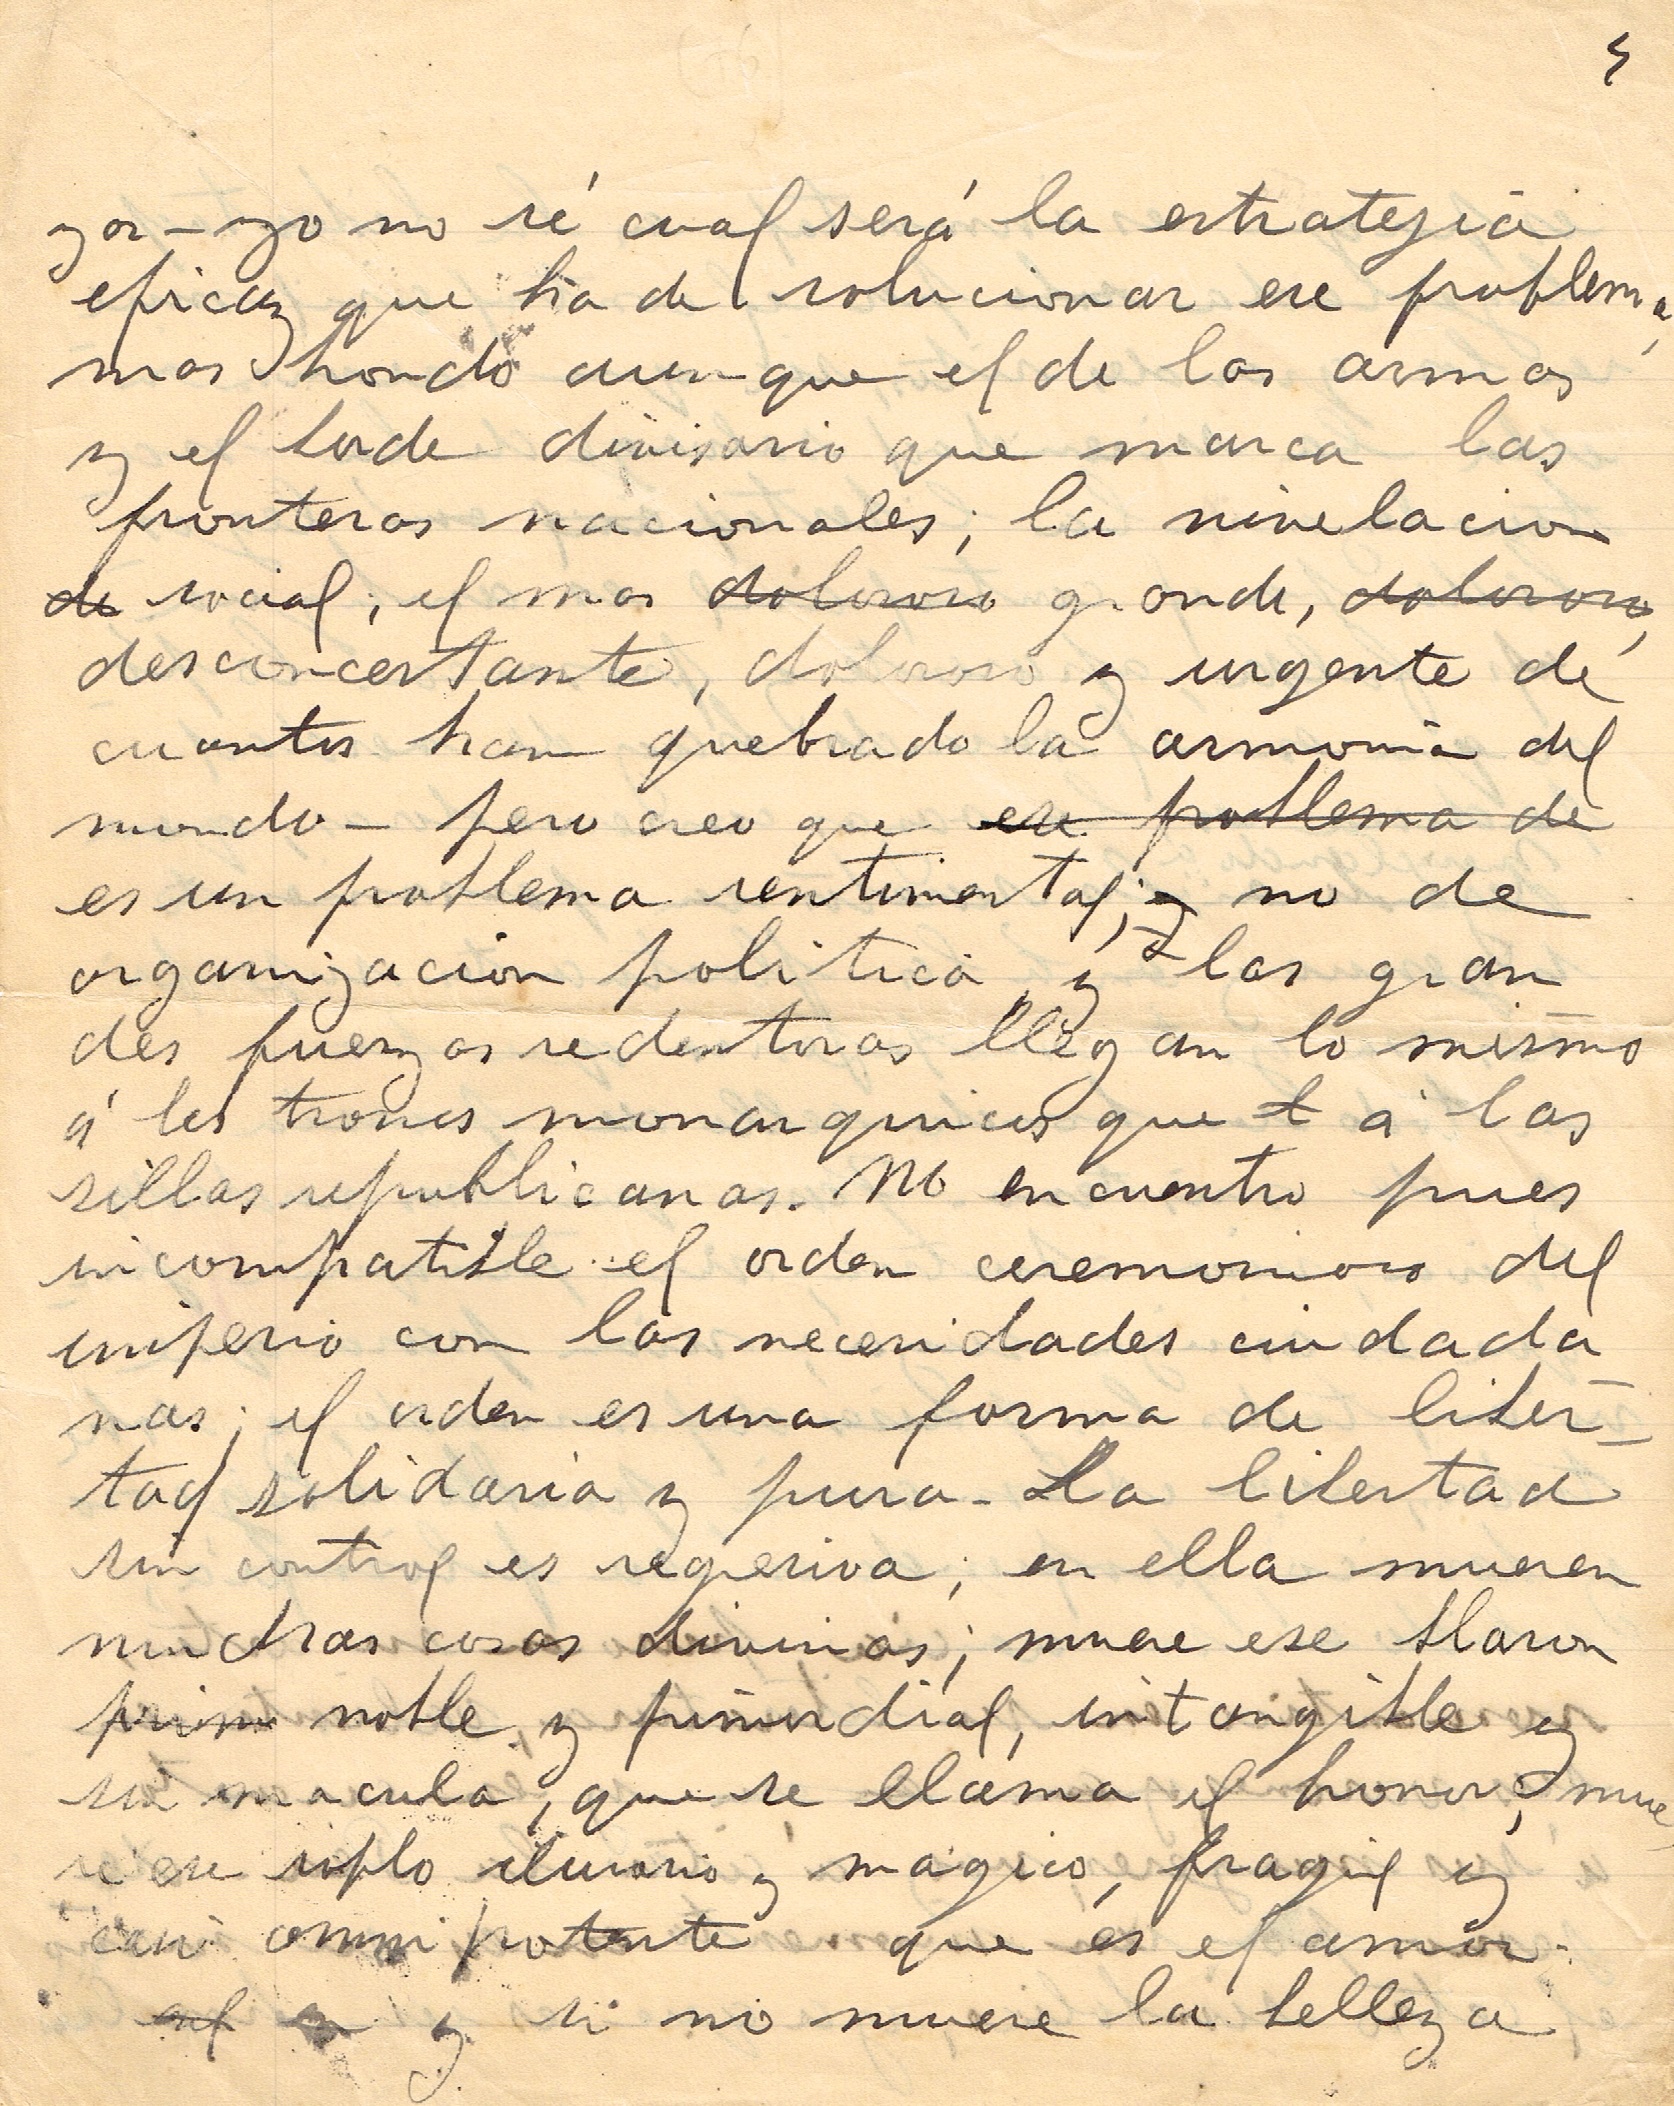 5
yor - yo no sé cual será la estrategia
eficaz que ha de solucionar ese problema,
mas hondo aunque el de las armas
y el borde divisorio que marca las
fronteras nacionales; la nivelacion
de social; el mas doloroso grande, doloroso,
desconcertante, doloroso y urgente de
cuantos han quebrado la armonia del
mundo - pero creo que ese problema de
es un problema sentimental; y no de
organizacion politica y las gran
des fuerzas redentoras llegan lo mismo
á los tronos monarquicos que l á las
sillas republicanas. No encuentro pues
incompatible el orden ceremonioso del
imperio con las necesidades ciudada
nas; el orden es una forma de liber-
tad solidaria y pura - La libertad
sin control es regresiva; en ella mueren
muchas cosas divinas; muere ese blason
prim noble y primordial, intangible y
sin macula, que se llama el honor; mue
re ese soplo ilusorio y magico, fragil y
casi omnipotente que es el amor.
y si no muere la belleza